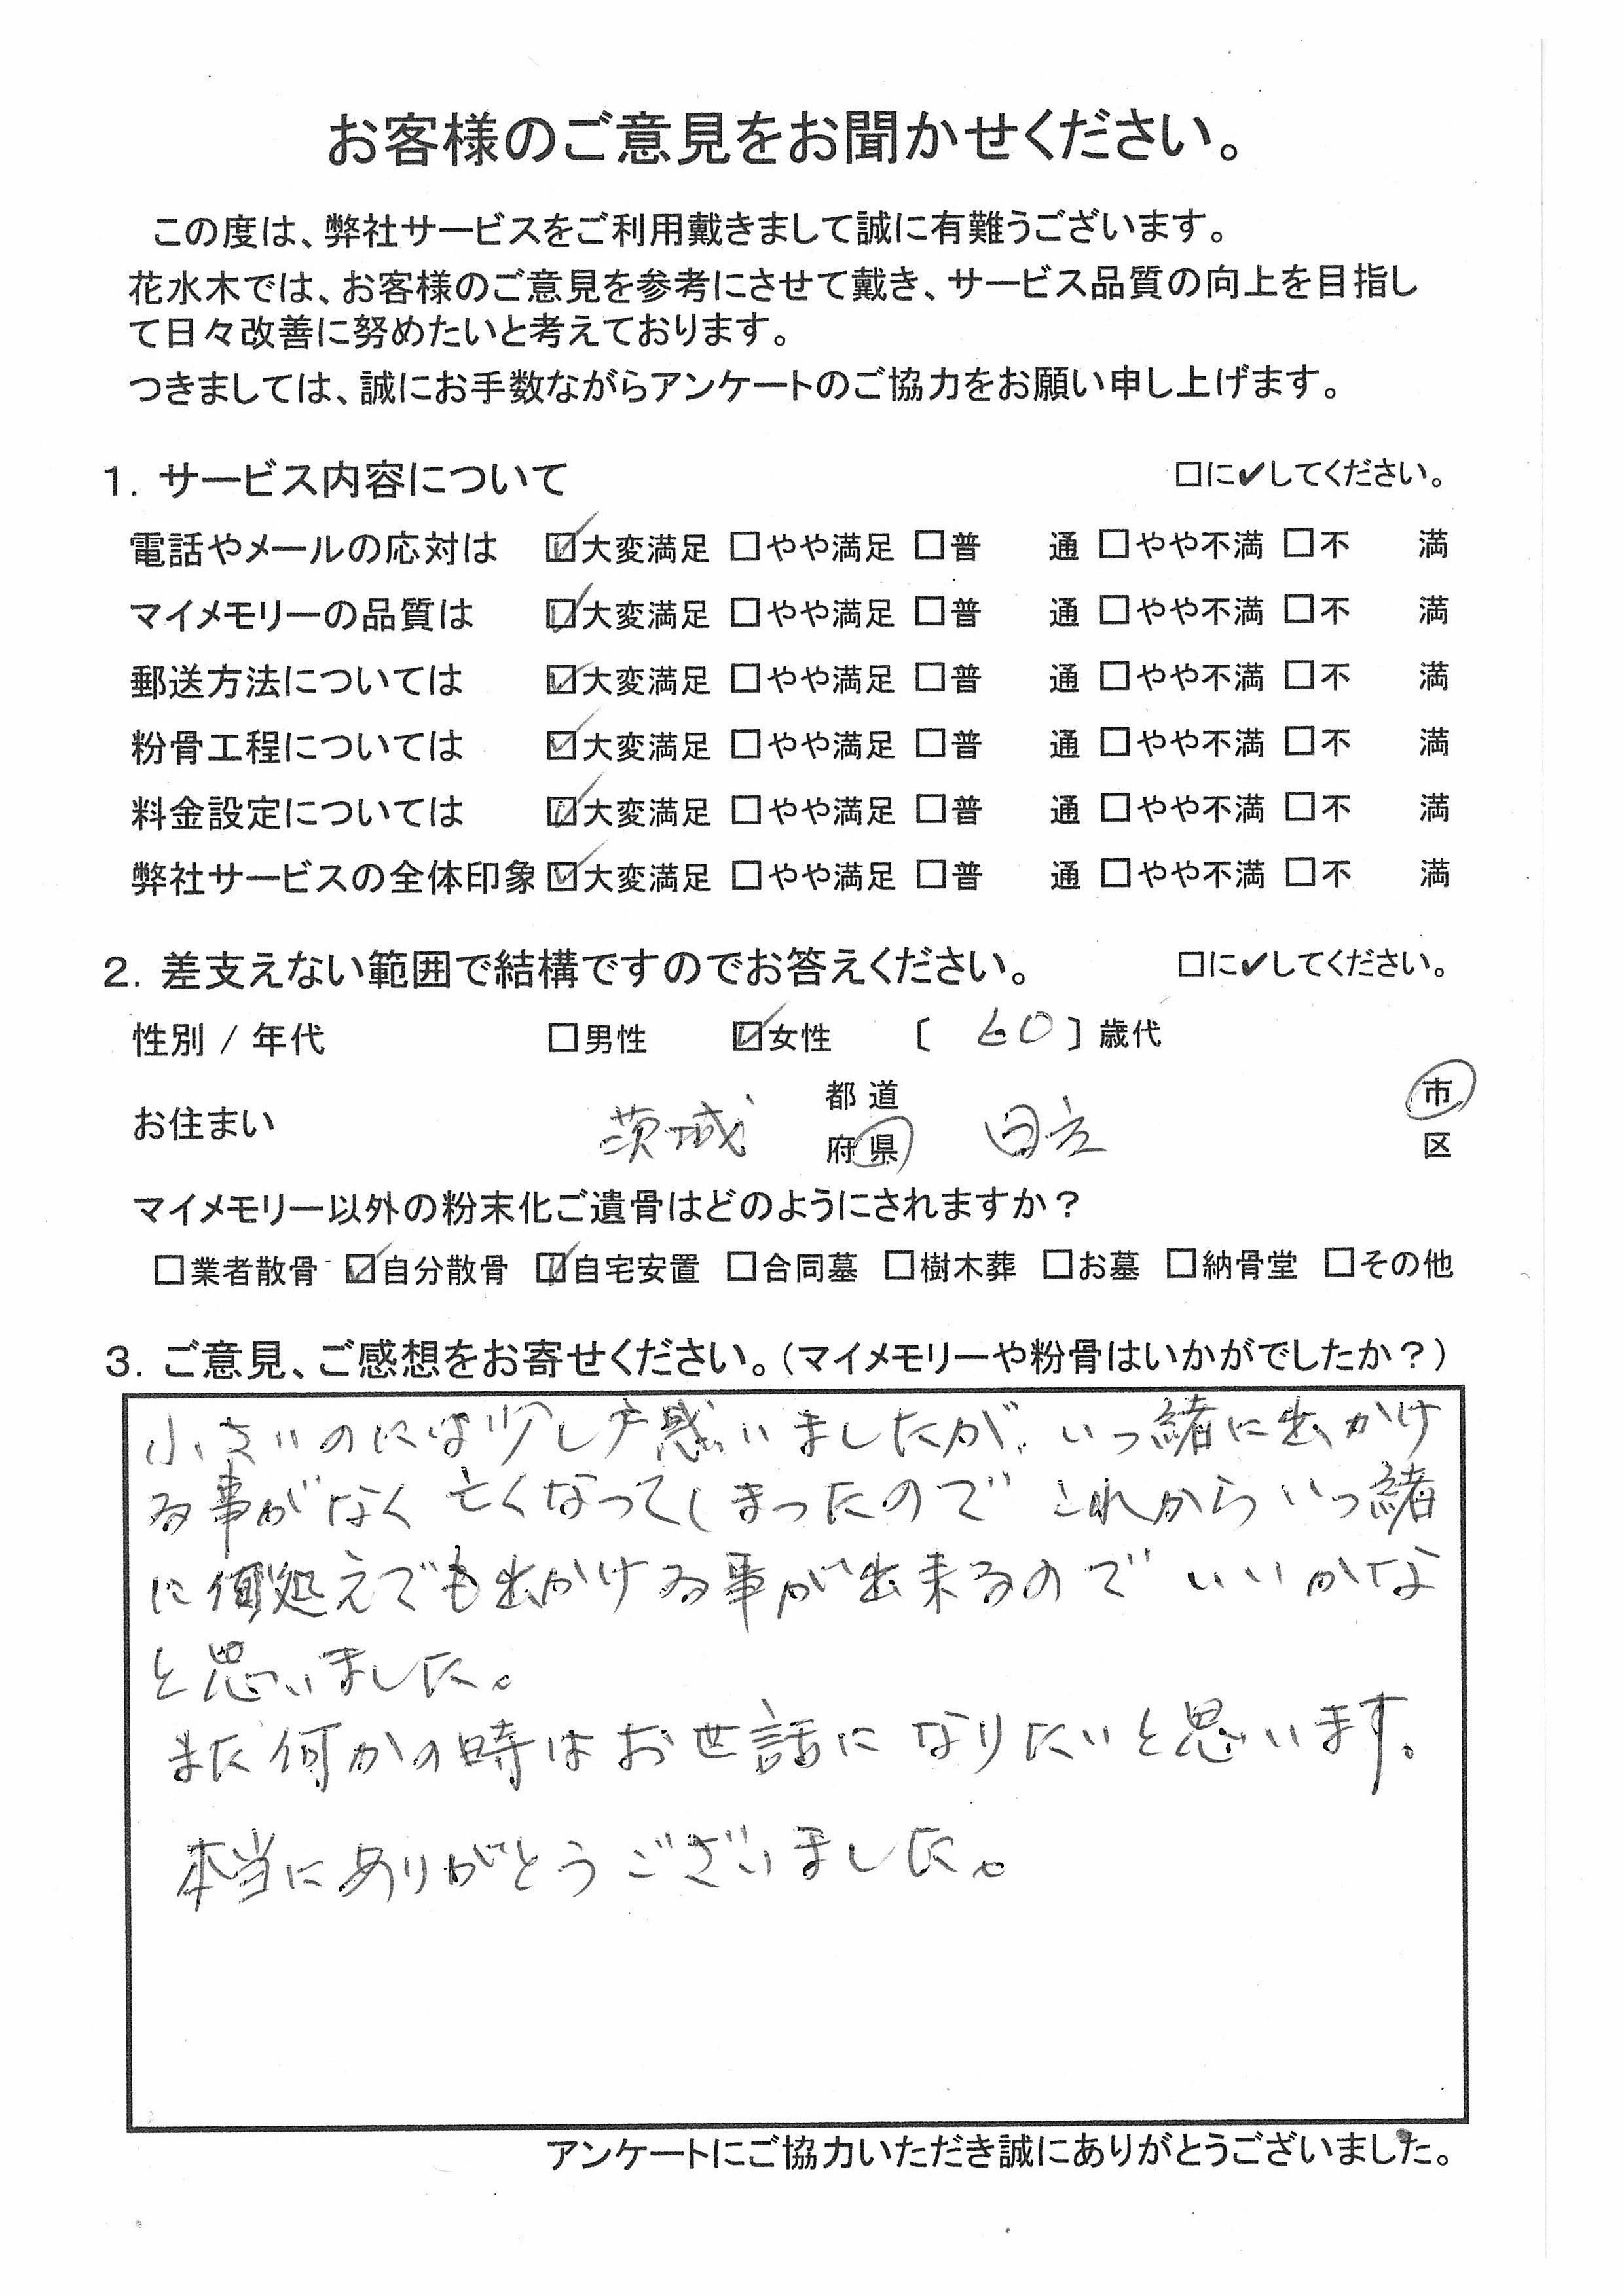 お客様のご意見をお聞かせください。
この度は、弊社サービスをご利用戴きまして誠に有難うございます。
花水木では、お客様のご意見を参考にさせて戴き、サービス品質の向上を目指し
て日々改善に努めたいと考えております。
つきましては、誠にお手数ながらアンケートのご協力をお願い申し上げます。
1. サービス内容について □に✔してください。
電話やメールの応対は ☑大変満足 □やや満足 □普 通 □やや不満 □不 満
マイメモリーの品質は ☑大変満足 □やや満足 □普 通 □やや不満 □不 満
郵送方法については ☑大変満足 □やや満足 □普 通 □やや不満 □不 満
粉骨工程については ☑大変満足 □やや満足 □普 通 □やや不満 □不 満
料金設定については ☑大変満足 □やや満足 □普 通 □やや不満 □不 満
弊社サービスの全体印象 ☑大変満足 □やや満足 □普 通 □やや不満 □不 満
2. 差支えない範囲で結構ですのでお答えください。 □に✔してください。
性別 / 年代 □男性 ☑女性 〔 60 〕歳代
お住まい 茨城 都道府県 日立 市区
マイメモリー以外の粉末化ご遺骨はどのようにされますか？
□業者散骨 ☑自分散骨 ☑自宅安置 □合同墓 □樹木葬 □お墓 □納骨堂 □その他
3. ご意見、ご感想をお寄せください。（マイメモリーや粉骨はいかがでしたか？）
小さいのには少し戸惑いましたが、いっ緒に出かけ
る事がなく亡くなってしまったので これからいっ緒
に何処えでも出かける事が出来るので いいかな
と思いました。
また何かの時はお世話になりたいと思います。
本当にありがとうございました。
アンケートにご協力いただき誠にありがとうございました。